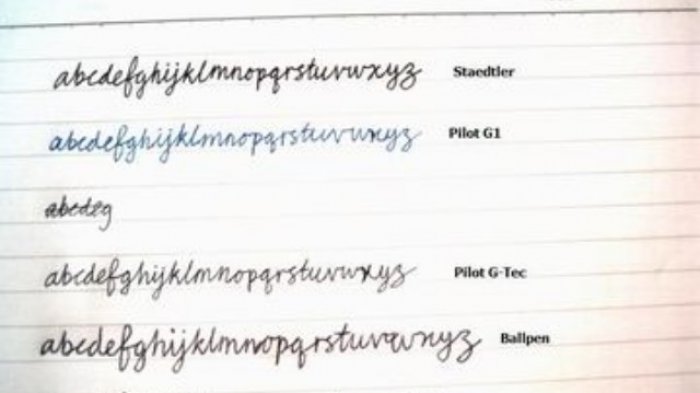 abcdefghijklmnopqrstuvwxyz Staedtler
abcdefghijklmnopqrstuvwxyz Pilot G1
abcdeg
abcdefghijklmnopqrstuvwxyz Pilot G-Tec
abcdefghijklmnopqrstuvwxyz Ballpen